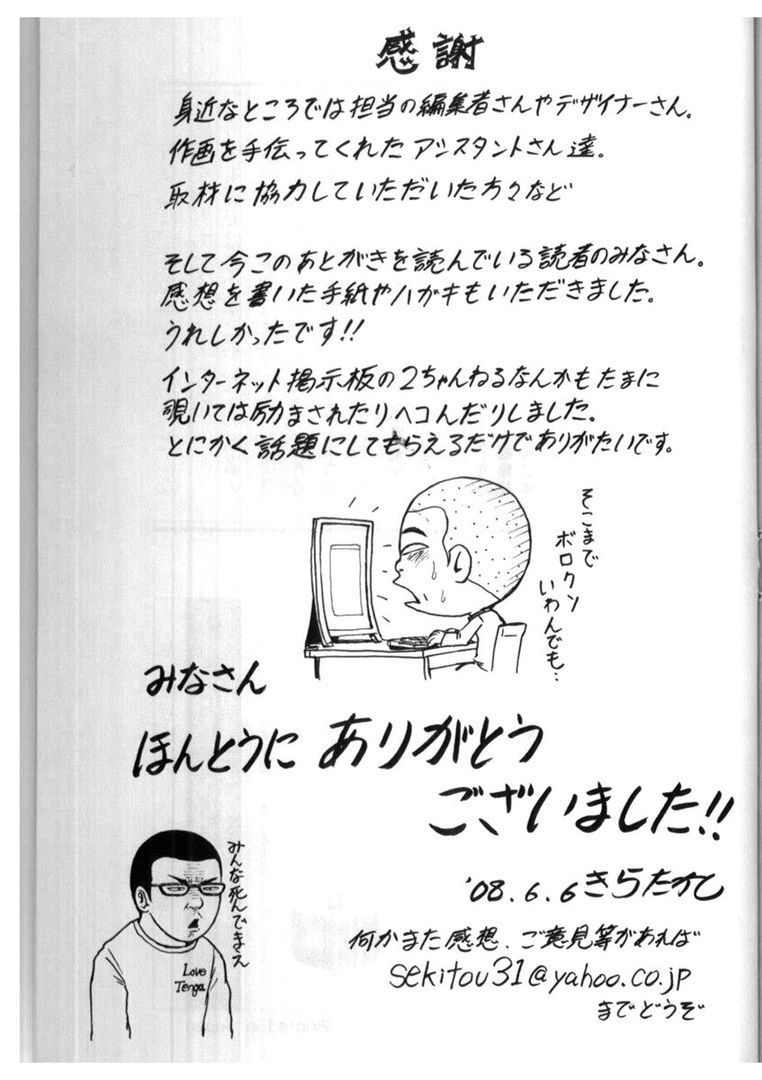 感謝
身近なところでは担当の編集者さんやデザイナーさん。
作画を手伝ってくれたアシスタントさん達。
取材に協力していただいた方々など
そして今このあとがきを読んでいる読者のみなさん。
感想を書いた手紙やハガキもいただきました。
うれしかったです!!
インターネット掲示板の2ちゃんねるなんかもたまに
覗いては励まされたりヘコんだりしました。
とにかく話題にしてもらえるだけでありがたいです。
そこまで
ボロクソ
いわんでも…
みなさん
ほんとうに ありがとう
ございました!!
みんな死んでまえ
Love
Tenga
'08.6.6 きらたかし
何かまた感想、ご意見等があれば
sekitou31@yahoo.co.jp
までどうぞ